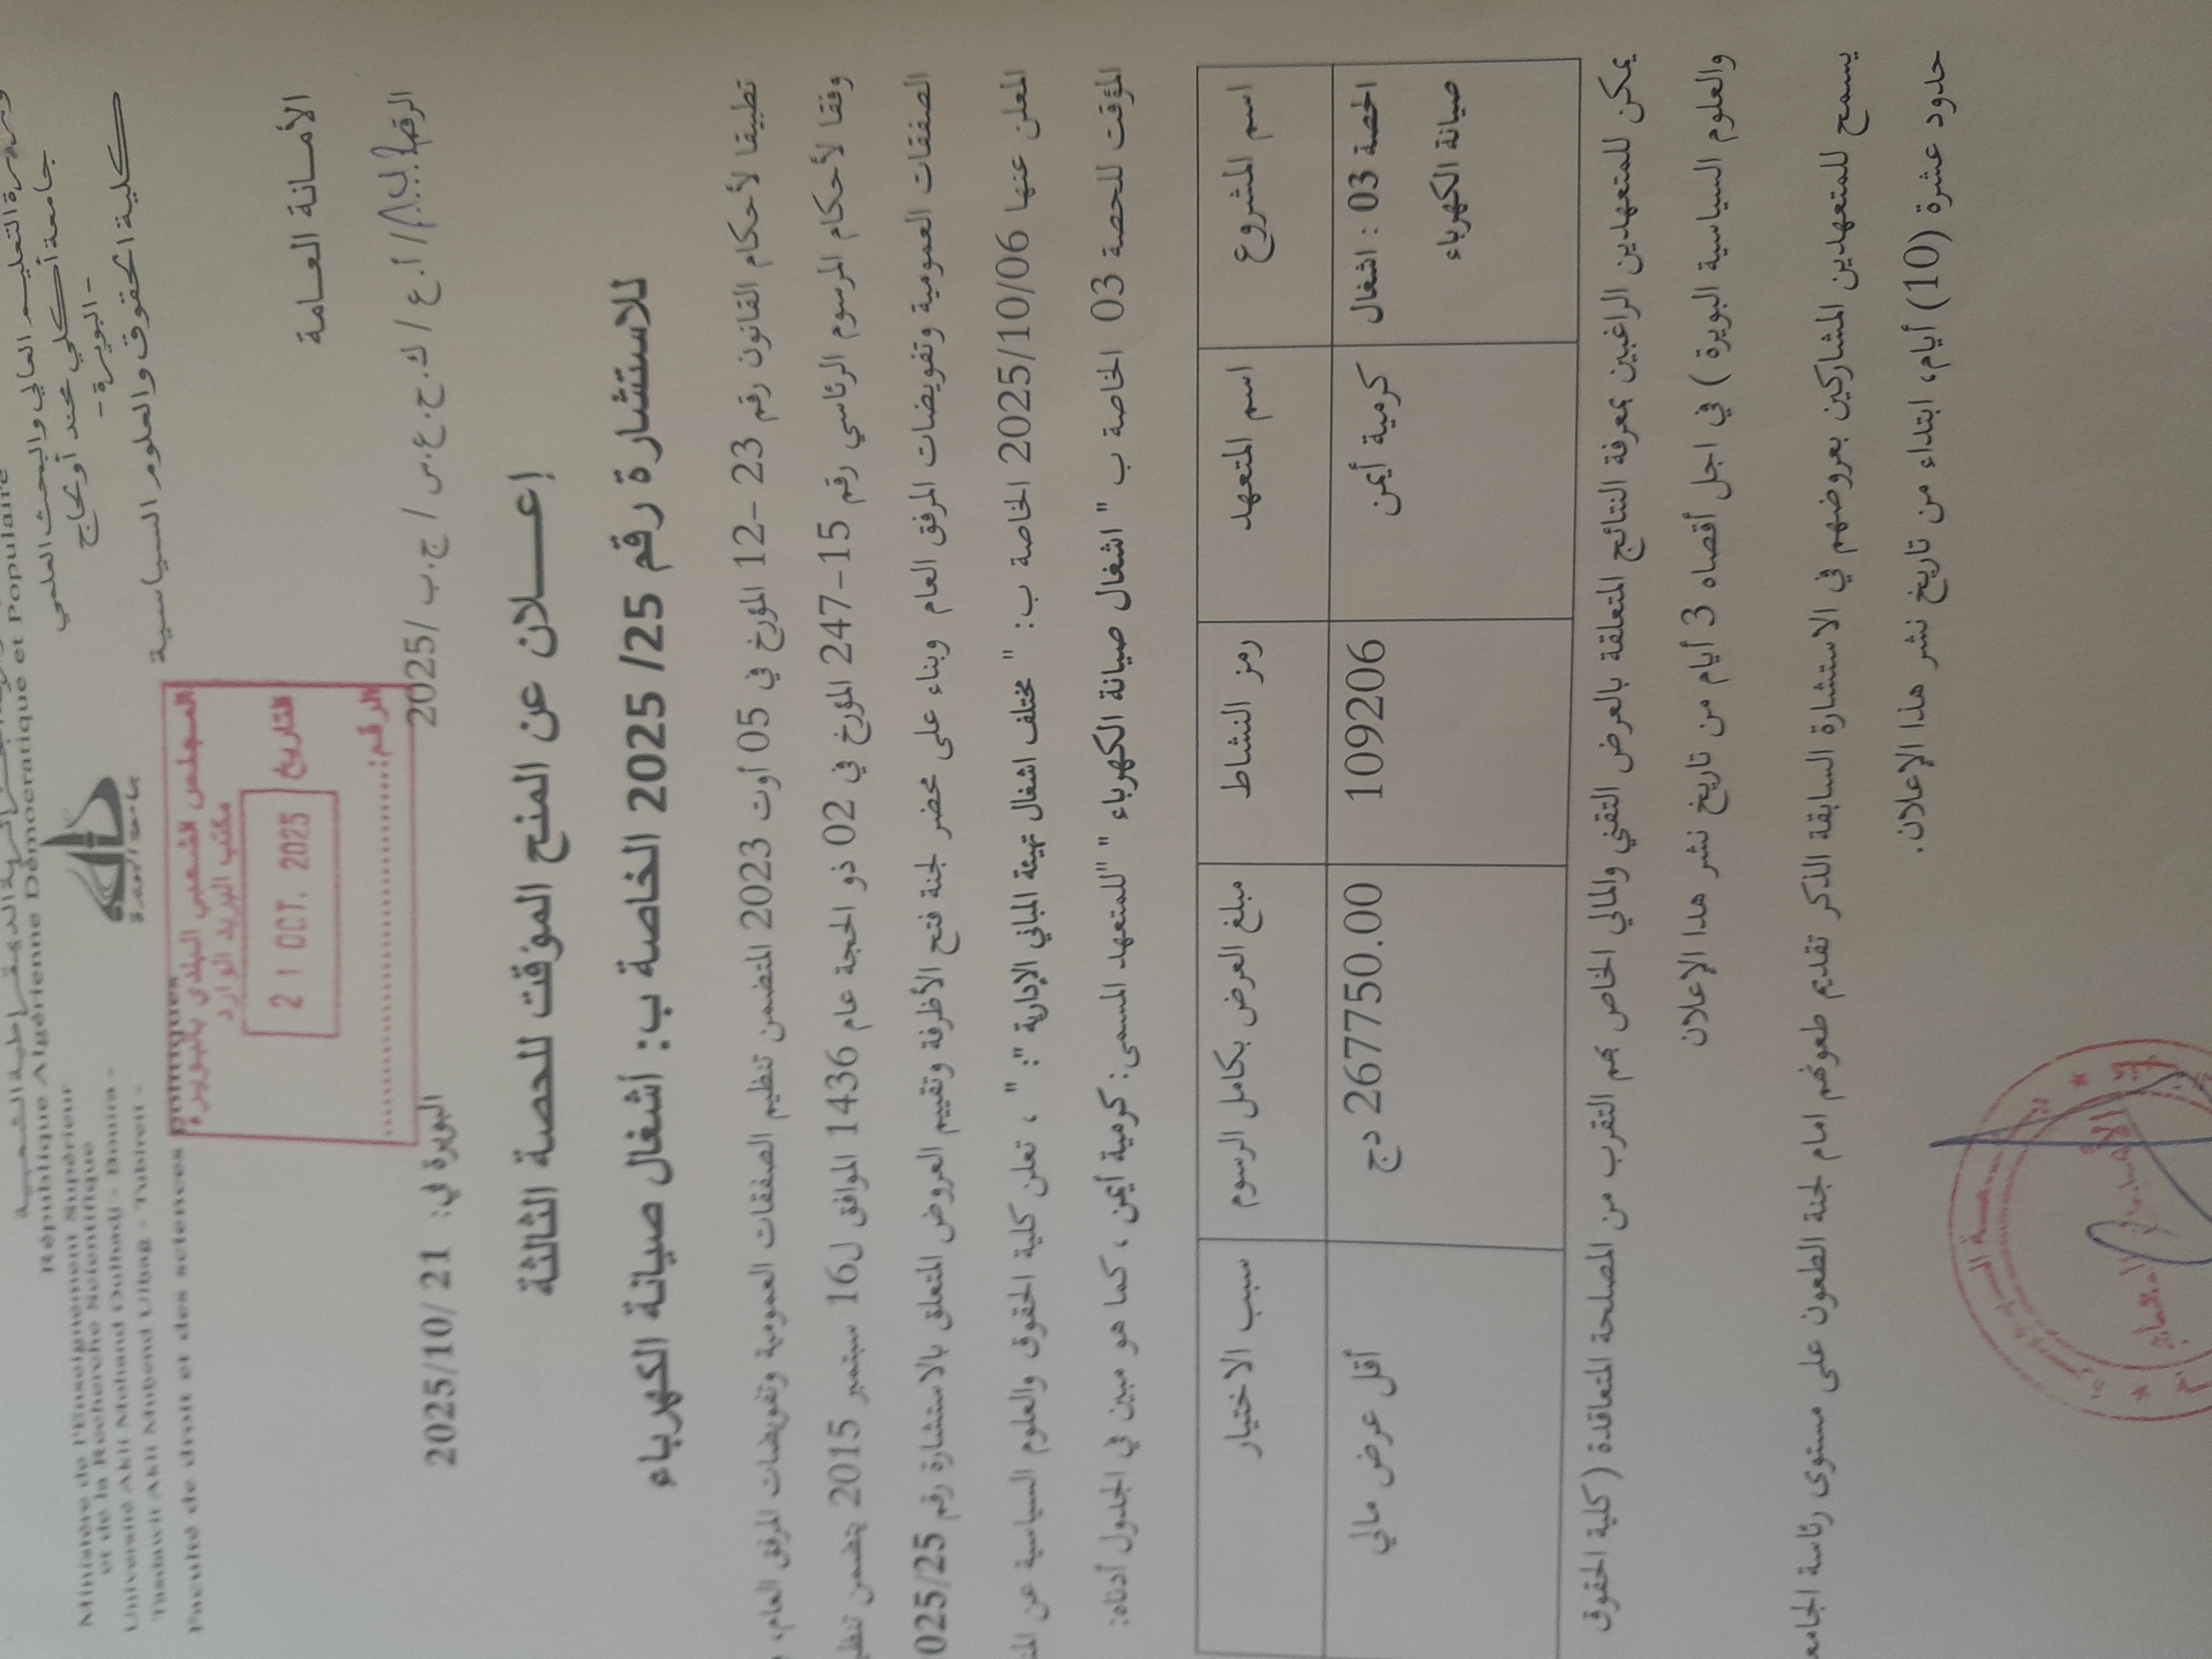 République Algérienne Démocratique et Populaire
وزارة التعليم العالي والبحث العلمي
جامعة أكلي محند أولحاج
- البويرة -
كلية الحقوق والعلوم السياسية
Ministère de l'Enseignement Supérieur
et de la Recherche Scientifique
Université Akli Mohand Oulhadj - Bouira -
Tasdawit Akli Muḥend Ulḥağ - Tubiret -
Faculté de droit et des sciences politiques
المجلس الشعبي البلدي بالبويرة
مكتب البريد الوارد
التاريخ 21 OCT. 2025
الرقم:
الأمــانة العــامة
الرقم /أ.ع / ك.ح.ع.س / ج.ب /2025
البويرة في: 21 /2025/10
إعــــلان عن المنح المؤقت للحصة الثالثة
للاستشارة رقم 25/ 2025 الخاصة ب: أشغال صيانة الكهرباء
تطبيقا لأحكام القانون رقم 23 -12 المؤرخ في 05 أوت 2023 المتضمن تنظيم الصفقات العمومية وتفويضات المرفق العام،
وفقا لأحكام المرسوم الرئاسي رقم 15-247 المؤرخ في 02 ذو الحجة عام 1436 الموافق ل16 سبتمبر 2015 يتضمن
الصفقات العمومية وتفويضات المرفق العام وبناء على محضر لجنة فتح الأظرفة وتقييم العروض المتعلق بالاستشارة رقم 025/25
المعلن عنها 2025/10/06 الخاصة ب: " مختلف اشغال تهيئة المباني الإدارية ": " ، تعلن كلية الحقوق والعلوم السياسية عن
المؤقت للحصة 03 الخاصة ب " اشغال صيانة الكهرباء " "للمتعهد المسمى: كرمية أيمن ، كما هو مبين في الجدول أدناه:
اسم المشروع اسم المتعهد رمز النشاط مبلغ العرض بكامل الرسوم سبب الاختيار
الحصة 03 : اشغال كرمية أيمن 109206 267750.00 دج أقل عرض مالي
صيانة الكهرباء
يمكن للمتعهدين الراغبين بمعرفة النتائج المتعلقة بالعرض التقني والمالي الخاص بهم التقرب من المصلحة المتعاقدة ( كلية الحقوق
والعلوم السياسية البويرة ) في اجل أقصاه 3 أيام من تاريخ نشر هدا الإعلان
يسمح للمتعهدين المشاركين بعروضهم في الاستشارة السابقة الذكر تقديم طعونهم امام لجنة الطعون على مستوى رئاسة
حدود عشرة (10) أيام، ابتداء من تاريخ نشر هذا الإعلان.